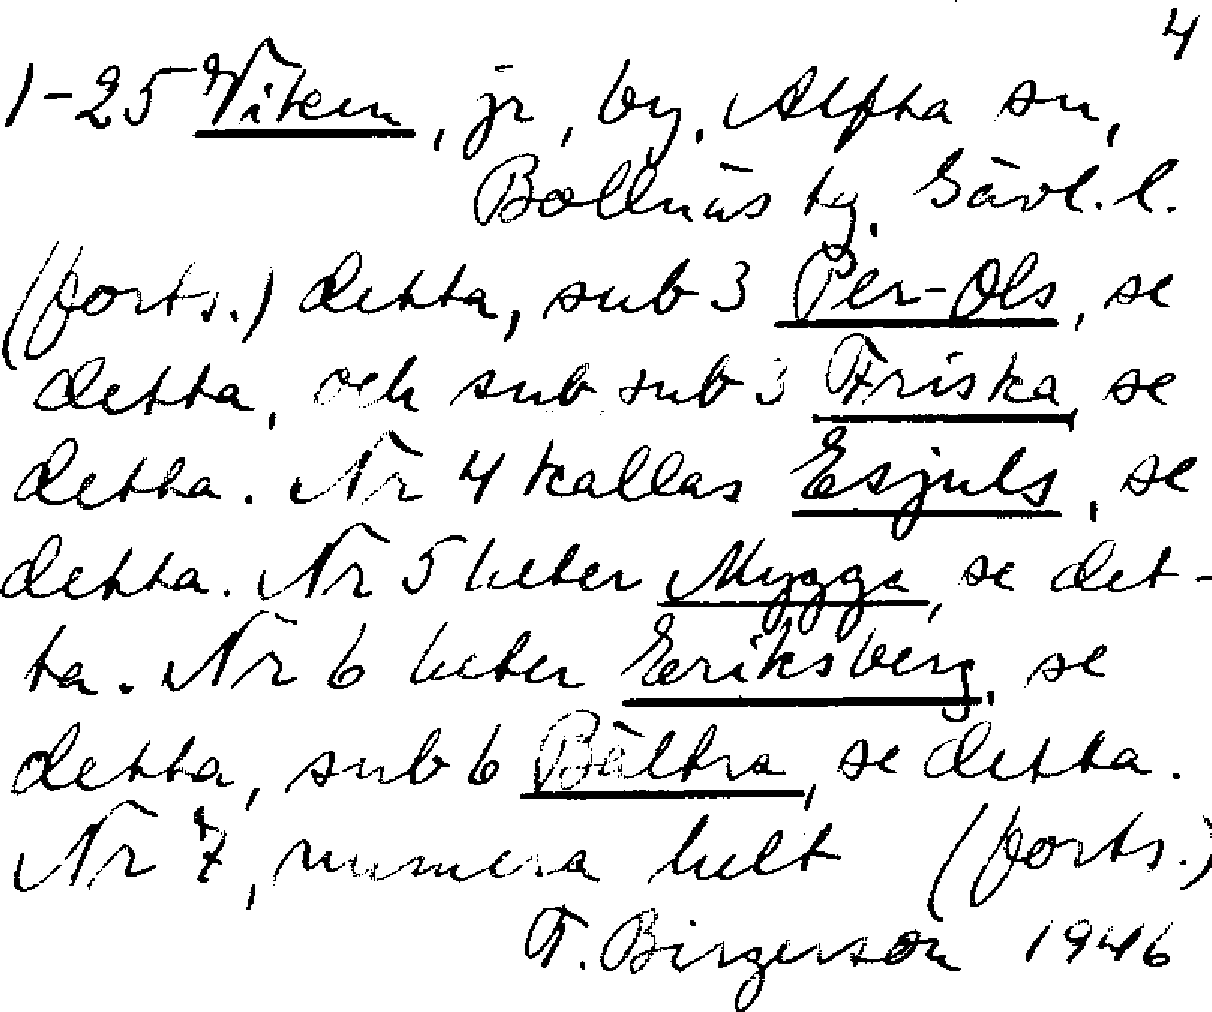 4
1-25 Viken, jr, by, Alfta sn,
Bollnäs tg. Gävl. l.
(forts.) detta, sub 3 Per-Ols, se
detta, och sub sub 3 Friska, se
detta. Nr 4 kallas Esjuls, se
detta. Nr 5 heter Mygga, se det-
ta. Nr 6 heter Eriksberg, se
detta, sub 6 Bältra, se detta.
Nr 7, numera helt (forts.)
T. Birgerson 1946